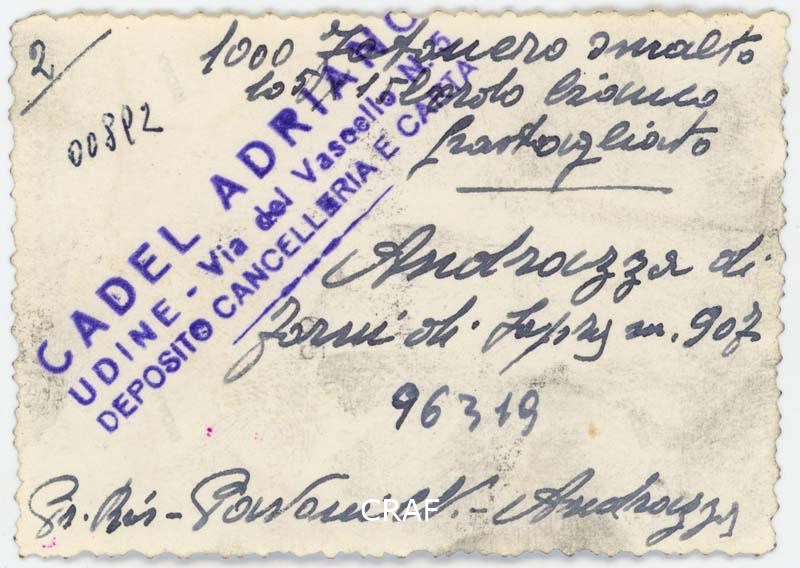 2
1000 Fotocero smalto
10,5 x 15 Bordo bianco
frastagliato
00892
CADEL ADRIANO
UDINE - Via del Vascello N. 5
DEPOSITO CANCELLERIA E CARTA
Andrazza di
Forni di Sopra m. 907
96319
Pr. Ris - Pavoni V. - Andrazza
CRAF